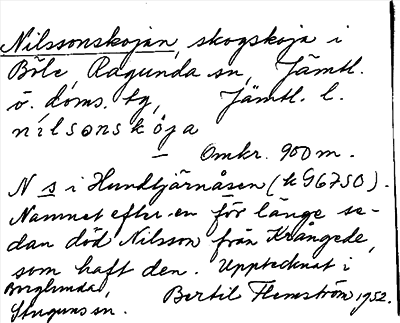 Nilssonskojan, skogskoja i
Böle, Ragunda sn, Jämtl.
ö. doms. tg, Jämtl. l.
nilsonskòja
– Omkr. 900 m.
N s i Hundtjärnåsen (k G6750).
Namnet efter en för länge se-
dan död Nilsson från Krångede,
som haft den. Upptecknat i
Berglunda,
Stuguns sn. Bertil Flemström 1952.